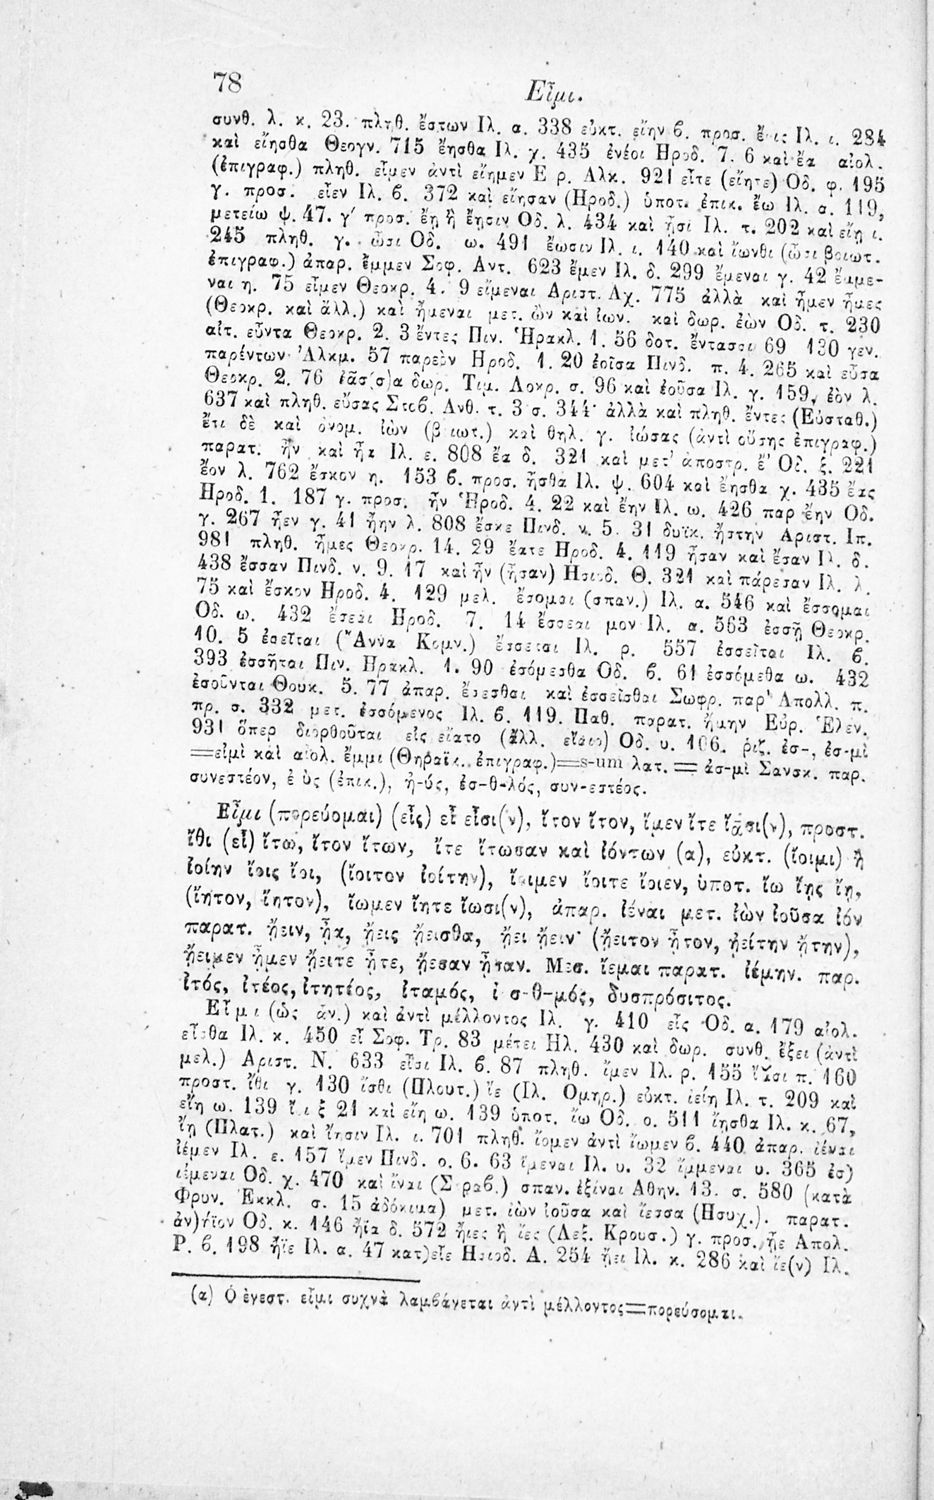 78
Εἶμι.
συνθ. λ. κ. 23. πληθ. ἔστων Ιλ. α. 338 εὐκτ. εἴην 6. προσ. ἔοις Ιλ. ι. 284
καὶ εἴησθα Θεογν. 715 ἔησθα Ιλ. χ. 435 ἐνέοι Ηροδ. 7. 6 καὶ ἔα αἰολ.
(ἐπιγραφ.) πληθ. εἶμεν ἀντὶ εἴημεν Ε ρ. Αλκ. 921 εἶτε (εἴητε) Οδ. φ. 195
γ. προσ. εἶεν Ιλ. 6. 372 καὶ εἴησαν (Ηροδ.) ὑποτ. ἐπικ. ἔω Ιλ. α. 119,
μετείω ψ. 47. γ' προσ. ἔῃ ἢ ἔῃσιν Οδ. λ. 434 καὶ ᾖσι Ιλ. τ. 202 καὶ εἴῃ ι.
245 πληθ. γ. ὦσι Οδ. ω. 491 ἔωσιν Ιλ. ι. 140 καὶ ἴωνθι (ὦσι βοιωτ.
ἐπιγραφ.) ἀπαρ. ἔμμεν Σοφ. Αντ. 623 ἔμεν Ιλ. δ. 299 ἔμεναι γ. 42 ἔμμε-
ναι η. 75 εἶμεν Θεοκρ. 4. 9 εἴμεναι Αριστ. Αχ. 775 ἀλλὰ καὶ ἦμεν ἦμες
(Θεοκρ. καὶ ἄλλ.) καὶ ἤμεναι μετ. ὢν καὶ ἰων. καὶ δωρ. ἐὼν Οδ. τ. 230
αἰτ. εὖντα Θεοκρ. 2. 3 ἔντες Πιν. Ἡρακλ. 1. 56 δοτ. ἔντασσι 69 130 γεν.
παρέντων Ἀλκμ. 57 παρεὸν Ηροδ. 1. 20 ἐοῖσα Πινδ. π. 4. 265 καὶ εὖσα
Θεοκρ. 2. 76 ἐᾶσ(σ)α δωρ. Τιμ. Λοκρ. σ. 96 καὶ ἐοῦσα Ιλ. γ. 159, ἐὸν λ.
637 καὶ πληθ. εὔσας Στοβ. Ανθ. τ. 3 σ. 344· ἀλλὰ καὶ πληθ. ἔντες (Εὐσταθ.)
ἔτι δὲ καὶ ὀνομ. ἰὼν (βοιωτ.) καὶ θηλ. γ. ἰώσας (ἀντὶ οὔσης ἐπιγραφ.)
παρατ. ἦν καὶ ἦα Ιλ. ε. 808 ἔα δ. 321 καὶ μετ' ἀποστρ. ἔ' Οδ. ξ. 221
ἔον λ. 762 ἔσκον η. 153 6. προσ. ἦσθα Ιλ. ψ. 604 καὶ ἔησθα χ. 435 ἔας
Ηροδ. 1. 187 γ. προσ. ἦν Ἡροδ. 4. 22 καὶ ἔην Ιλ. ω. 426 παρ ἔην Οδ.
γ. 267 ἦεν γ. 41 ἤην λ. 808 ἔσκε Πινδ. ν. 5. 31 δυϊκ. ἤστην Αριστ. Ιπ.
981 πληθ. ἦμες Θεοκρ. 14. 29 ἔατε Ηροδ. 4. 119 ἦσαν καὶ ἔσαν Ιλ. δ.
438 ἔσσαν Πινδ. ν. 9. 17 καὶ ἦν (ἦσαν) Ησιοδ. Θ. 321 καὶ πάρεσαν Ιλ. λ.
75 καὶ ἔσκον Ηροδ. 4. 129 μελ. ἔσομαι (σπαν.) Ιλ. α. 546 καὶ ἔσσομαι
Οδ. ω. 432 ἔσεαι Ηροδ. 7. 14 ἔσσεαι μον Ιλ. α. 563 ἐσσῇ Θεοκρ.
10. 5 ἐσεῖται (Ἄννα Κομν.) ἔσσεται Ιλ. ρ. 557 ἐσσεῖται Ιλ. 6.
393 ἐσσῆται Πιν. Ηρακλ. 1. 90 ἐσόμεσθα Οδ. 6. 61 ἐσσόμεθα ω. 432
ἐσοῦνται Θουκ. 5. 77 ἀπαρ. ἔσεσθαι καὶ ἐσσεῖσθαι Σωφρ. παρ' Απολλ. π.
πρ. σ. 332 μετ. ἐσσόμενος Ιλ. 6. 119. Παθ. παρατ. ἤμην Εὐρ. Ἑλεν.
931 ὅπερ διορθοῦται εἰς εἵατο (ἄλλ. εἴατο) Οδ. υ. 106. ῥιζ. ἐσ-, ἐσ-μὶ
=εἰμὶ καὶ αἰολ. ἔμμι (Θηραϊκ. ἐπιγραφ.)=s-um λατ. = ἀσ-μὶ Σανσκ. παρ.
συνεστέον, ἐ ὺς (ἐπικ.), ἠ-ύς, ἐσ-θ-λός, συν-εστέος.
Εἶμι (πορεύομαι) (εἶς) εἶ εἶσι(ν), ἴτον ἴτον, ἴμεν ἴτε ἴᾱσι(ν), προστ.
ἴθι (εἶ) ἴτω, ἴτον ἴτων, ἴτε ἴτωσαν καὶ ἰόντων (α), εὐκτ. (ἴοιμι) ἢ
ἰοίην ἴοις ἴοι, (ἴοιτον ἰοίτην), ἴοιμεν ἴοιτε ἴοιεν, ὑποτ. ἴω ἴῃς ἴῃ,
(ἴητον, ἴητον), ἴωμεν ἴητε ἴωσι(ν), ἀπαρ. ἰέναι μετ. ἰὼν ἰοῦσα ἰόν
παρατ. ᾔειν, ᾖα, ᾔεις ᾔεισθα, ᾔει ᾔειν· (ᾔειτον ᾖτον, ᾐείτην ᾔτην),
ᾔειμεν ᾖμεν ᾔειτε ᾖτε, ᾔεσαν ᾖσαν. Μεσ. ἵεμαι παρατ. ἱέμην. παρ.
ἰτός, ἰτέος, ἰτητέος, ἰταμός, ἰ σ-θ-μός, δυσπρόσιτος.
Εἶμι (ὡς ἄν.) καὶ ἀντὶ μέλλοντος Ιλ. γ. 410 εἶς Οδ. α. 179 αἰολ.
εἶσθα Ιλ. κ. 450 εἶ Σοφ. Τρ. 83 μέτει Ηλ. 430 καὶ δωρ. συνθ. ἔξει (ἀντὶ
μελ.) Αριστ. Ν. 633 εἶσι Ιλ. 6. 87 πληθ. ἴμεν Ιλ. ρ. 155 ἴᾱσι π. 160
προστ. ἴθι γ. 130 ἴσθι (Πλουτ.) ἴε (Ιλ. Ομηρ.) εὐκτ. ἰείη Ιλ. τ. 209 καὶ
εἴη ω. 139 ἴοι ξ 21 καὶ εἴη ω. 139 ὑποτ. ἴω Οδ. ο. 511 ἴῃσθα Ιλ. κ. 67,
ἴῃ (Πλατ.) καὶ ἴῃσιν Ιλ. ι. 701 πληθ. ἴομεν ἀντὶ ἴωμεν 6. 440 ἀπαρ. ἰέναι
ἰέμεν Ιλ. ε. 157 ἴμεν Πινδ. ο. 6. 63 ἴμεναι Ιλ. υ. 32 ἴμμεναι υ. 365 ἐσ)
ιέμεναι Οδ. χ. 470 καὶ ἴναι (Στραβ.) σπαν. ἐξίναι Αθην. 13. σ. 580 (κατὰ
Φρυν. Ἐκκλ. σ. 15 ἀδόκιμα) μετ. ἰὼν ἰοῦσα καὶ ἴεσσα (Ησυχ.). παρατ.
ἀν)ήϊον Οδ. κ. 146 ἤϊα δ. 572 ἤιες ἢ ἴες (Λεξ. Κρουσ.) γ. προσ. ᾖε Απολ.
Ρ. 6. 198 ἤϊε Ιλ. α. 47 κατ)εῖε Ησιοδ. Α. 254 ᾔει Ιλ. κ. 286 καὶ ἴε(ν) Ιλ.
(α) Ὁ ἐνεστ. εἶμι συχνὰ λαμβάνεται ἀντὶ μέλλοντος=πορεύσομαι.